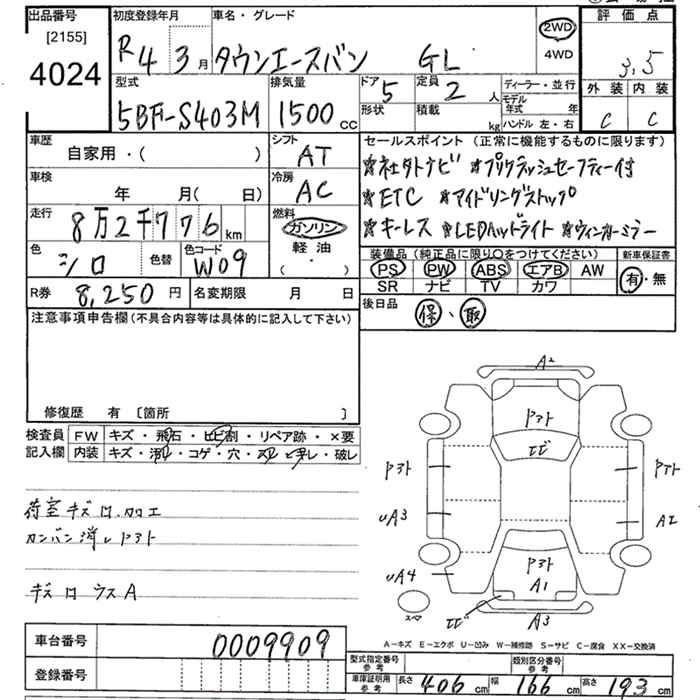 出品番号
[2155]
4024
初度登録年月
R4 3月
車名・グレード
タウンエースバン GL
2WD
4WD
評価点
3.5
外装 内装
C C
型式
5BF-S403M
排気量
1500cc
ドア
5
形状
定員
2人
積載
kg
ディーラー・並行
モデル年式 年
ハンドル 左・右
車歴
自家用・( )
シフト
AT
車検
年 月(日)
冷房
AC
走行
8万2千776km
燃料
ガソリン
軽油
( ・ )
色
シロ
色替
色コード
W09
R券
8,250円
名変期限 月 日
セールスポイント (正常に機能するものに限ります)
☆社外ナビ ☆プリクラッシュセーフティー付
☆ETC ☆アイドリングストップ
☆キーレス ☆LEDヘッドライト ☆ウィンカーミラー
装備品(純正品に限り○をつけてください)
PS PW ABS エアB AW
SR ナビ TV カワ
新車保証書
有・無
後日品
保、取
注意事項申告欄(不具合内容等は具体的に記入して下さい)
修復歴 有 [箇所 ]
検査員記入欄
FW キズ・飛石・ヒビ割・リペア跡・×要
内装 キズ・汚レ・コゲ・穴・スレ・ヨゴレ・破レ
荷室キズ ロ.カエ
カンバン消しアト
キズ ロ ウスA
A2
Pアト
ヒビ
Pアト
Pアト
UA3
A2
UA4
Pアト
A1
ヒビ
A3
スペア
A－キズ E－エクボ U－凹み W－補修跡 S－サビ C－腐食 XX－交換済
車台番号
0009909
登録番号
型式指定番号 参考
類別区分番号 参考
車庫証明用 参考
長さ 406cm 幅 166cm 高さ 193cm